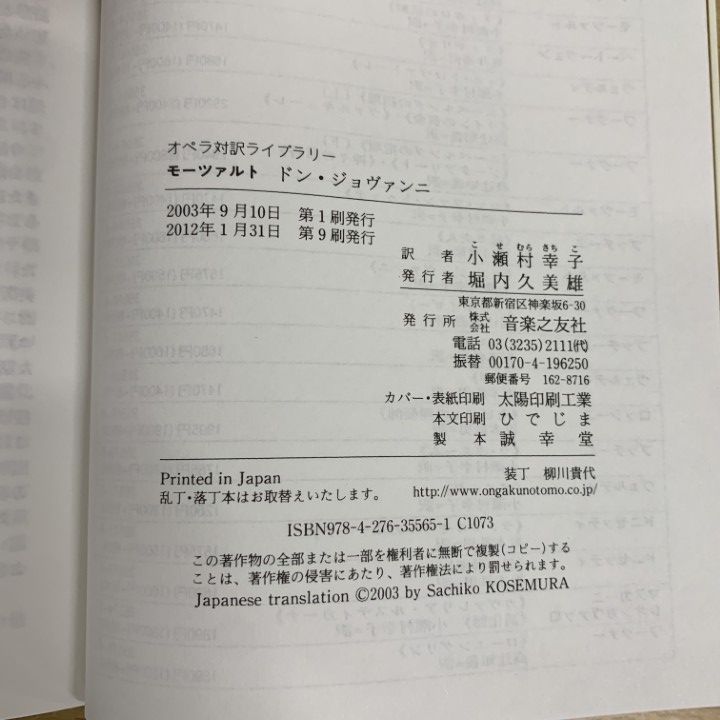 オペラ対訳ライブラリー
モーツァルト ドン・ジョヴァンニ
2003年9月10日 第1刷発行
2012年1月31日 第9刷発行
こせむらさちこ
訳者 小瀬村幸子
発行者 堀内久美雄
東京都新宿区神楽坂6-30
発行所 株式会社 音楽之友社
電話 03(3235)2111(代)
振替 00170-4-196250
郵便番号 162-8716
カバー・表紙印刷 太陽印刷工業
本文印刷 ひでじま
製本 誠幸堂
Printed in Japan 装丁 柳川貴代
乱丁・落丁本はお取替えいたします。 http://www.ongakunotomo.co.jp/
ISBN978-4-276-35565-1 C1073
この著作物の全部または一部を権利者に無断で複製(コピー)する
ことは、著作権の侵害にあたり、著作権法により罰せられます。
Japanese translation ©2003 by Sachiko KOSEMURA